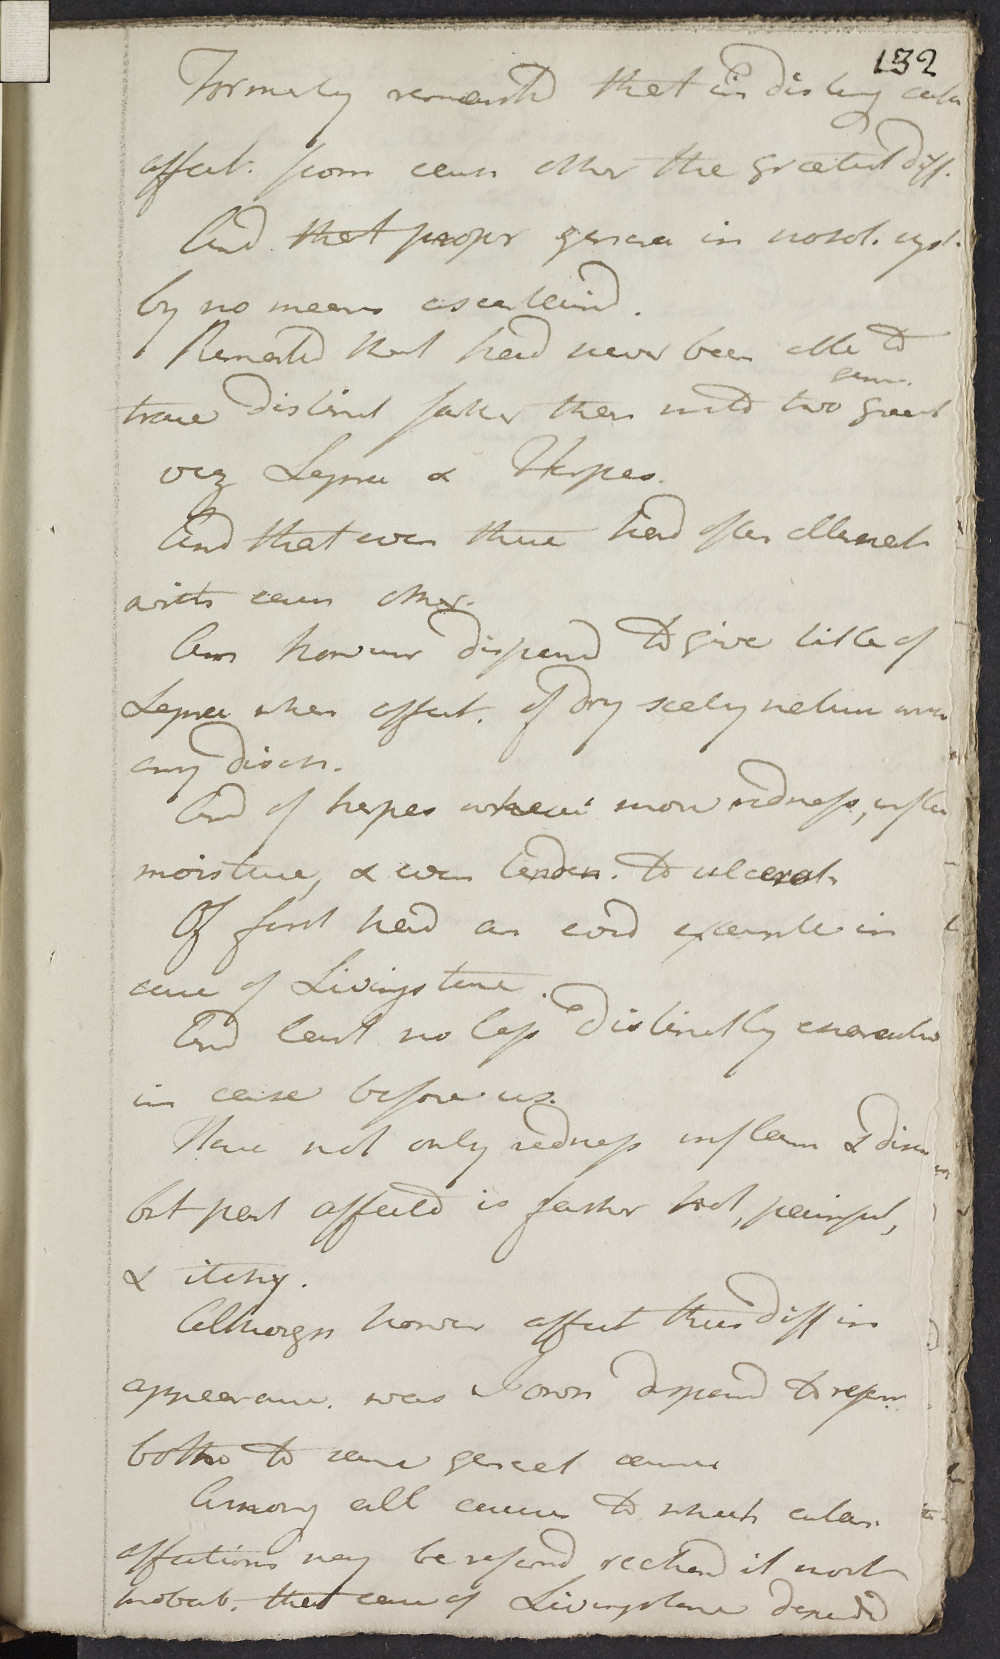 132
Formerly remarkd that in disting cutan
affect. from each other the greatest diff.
And that proper genera in nosol. syst.
by no means ascertaind.
Remarkd that had never been able to
trace distinct farther than into two great
genu.
viz Lepra & Herpes.
And that even these had often alternat
with each other.
Am however disposed to give title of
Lepra when affect. of dry scaly nature with
any disch.
And of herpes where more redness, inflam
moisture, & even tenden. to ulcerat.
Of first had an example in
case of Livingstone.
And last no less distinctly
in case before us.
Have not only redness inflam & disch
but part affected is farther hot, painful,
& itchy.
Although however affect thus diff in
appearance. was disposed to refer
both to same general cause
Among all causes to which cutan.
affections may be referred reckond it most
probab. that case of Livingstone depended